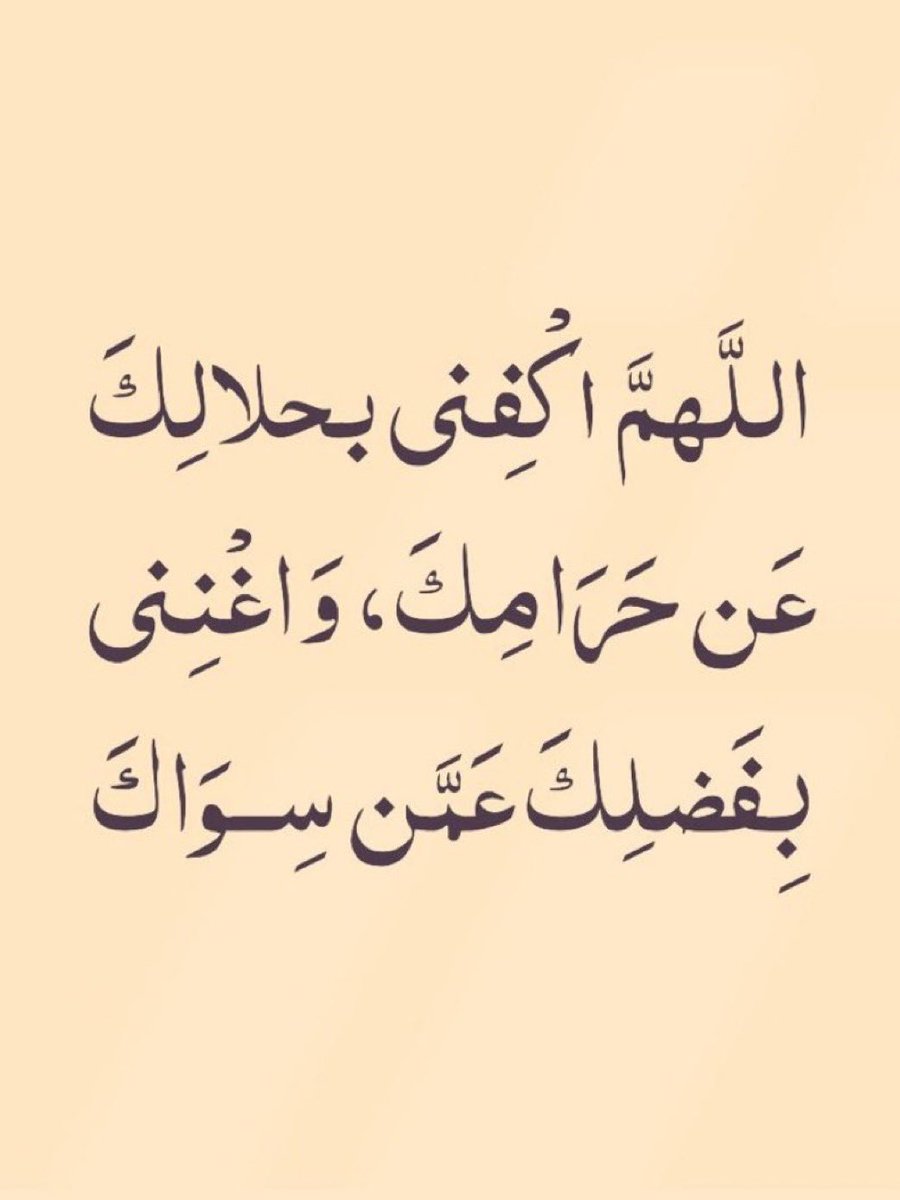 اللَّهمَّ اكْفِنى بحلالِكَ
عَن حَرَامِكَ، وَاغْنِنى
بِفَضلِكَ عَمَّن سِـوَاكَ